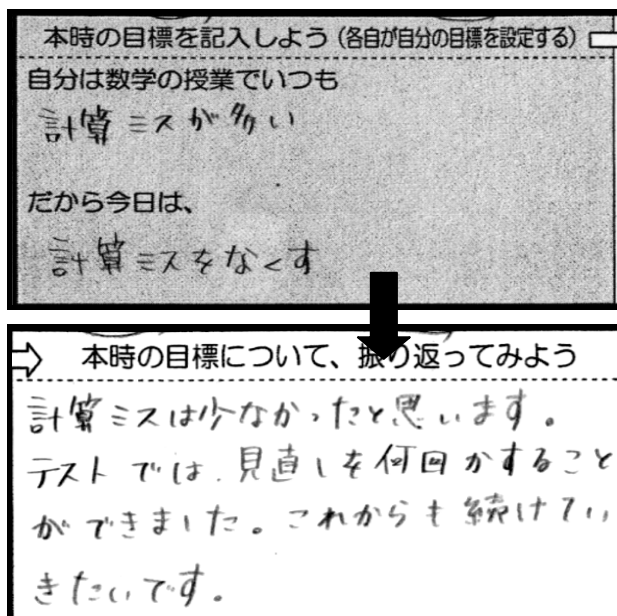 本時の目標を記入しよう(各自が自分の目標を設定する)
自分は数学の授業でいつも
計算ミスが多い
だから今日は、
計算ミスをなくす
本時の目標について、振り返ってみよう
計算ミスは少なかったと思います。
テストでは、見直しを何回かすること
ができました。これからも続けてい
きたいです。